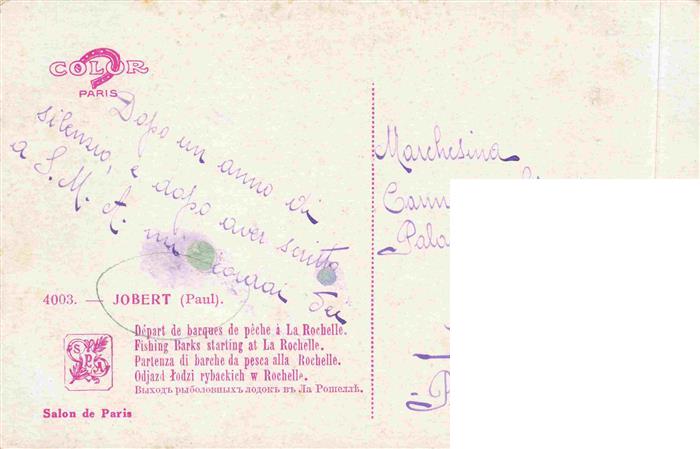 COLOR
PARIS
Dopo un anno di
silenzio, e dopo aver scritto
a S. M. A. mi dei
4003. — JOBERT (Paul).
Départ de barques de pêche à La Rochelle.
Fishing Barks starting at La Rochelle.
Partenza di barche da pesca alla Rochelle.
Odjazd łodzi rybackich w Rochelle.
Выходъ рыболовныхъ лодокъ въ Ла Рошеллѣ.
SPA
Salon de Paris
Marchesina